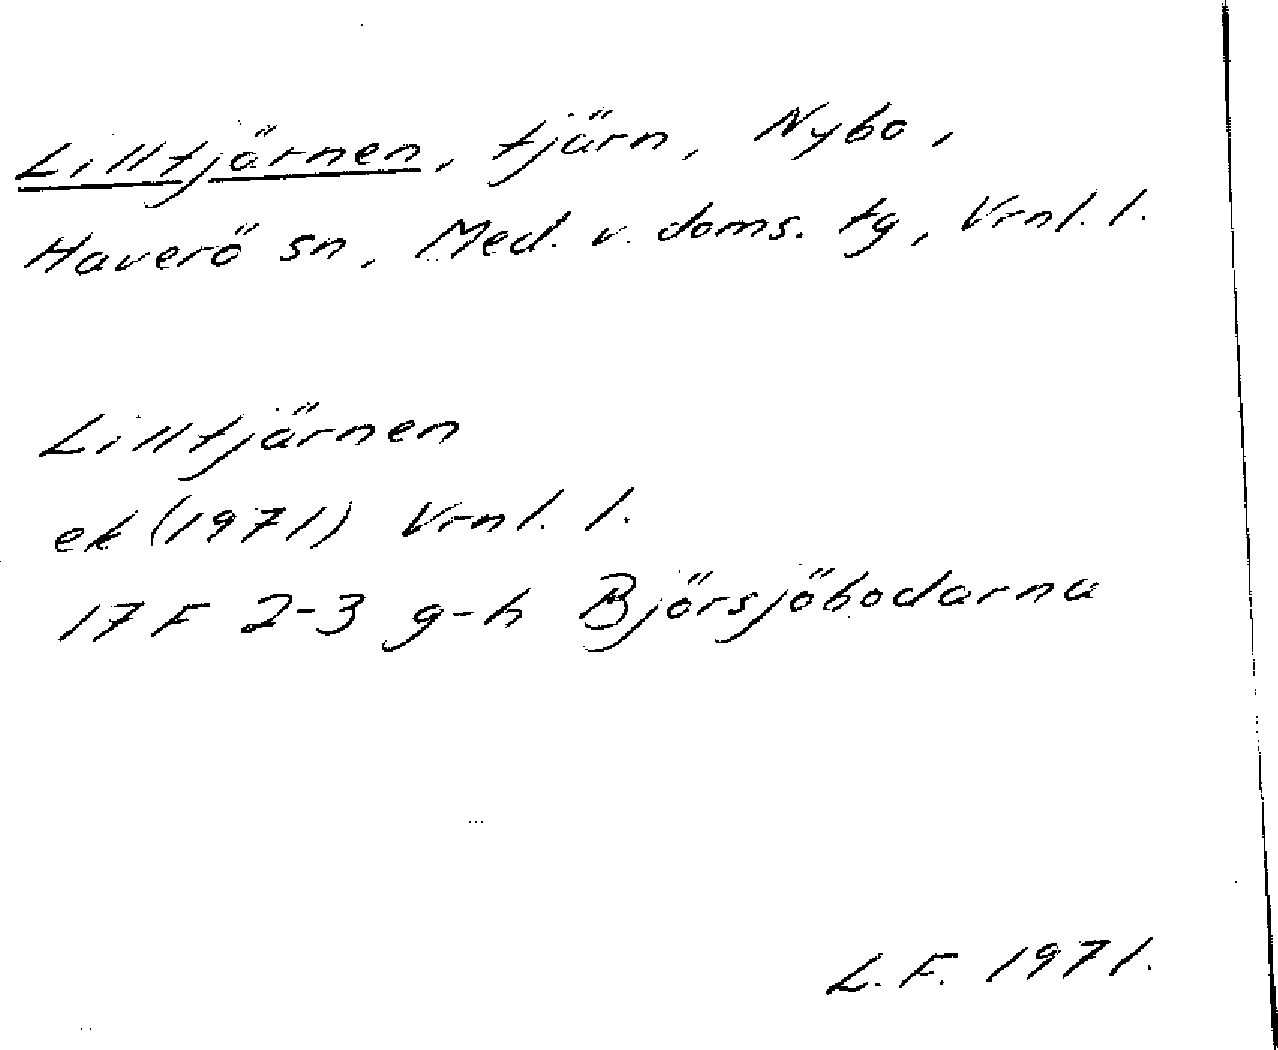 Lilltjärnen, tjärn, Nybo,
Haverö sn, Med. v. doms. tg, Vrnl. l.
Lilltjärnen
ek (1971) Vrnl. l.
17 F 2-3 g-h Björsjöbodarna
L. F. 1971.